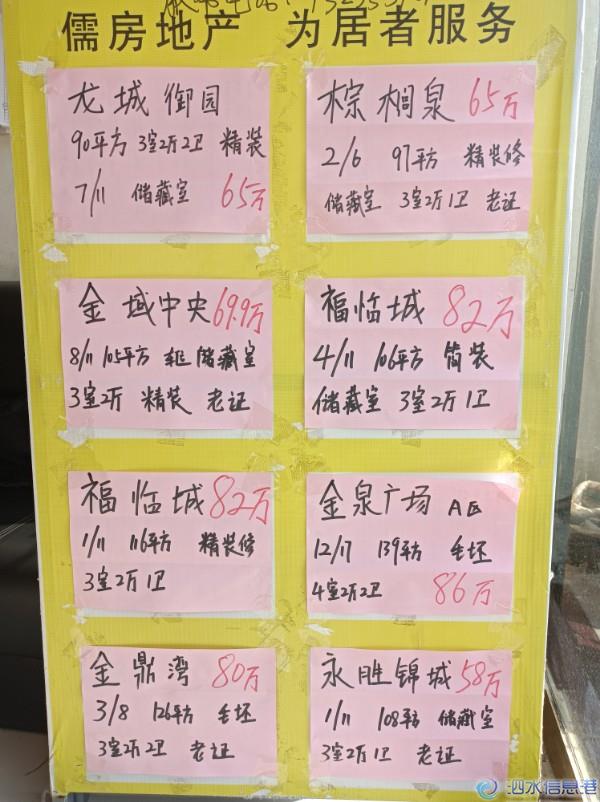 儒房地产 为居者服务
龙城御园
90平方 3室2厅2卫 精装
7/11 储藏室 65万
棕榈泉 65万
2/6 97平方 精装修
储藏室 3室2厅1卫 老证
金域中央 69.9万
8/11 105平方 车位 储藏室
3室2厅 精装 老证
福临城 82万
4/11 106平方 简装
储藏室 3室2厅1卫
福临城 82万
1/11 116平方 精装修
3室2厅1卫
金泉广场 A区
12/17 139平方 毛坯
4室2厅2卫 86万
金鼎湾 80万
3/8 126平方 毛坯
3室2厅2卫 老证
永胜锦城 58万
1/11 108平方 储藏室
3室2厅1卫 老证
泗水信息港